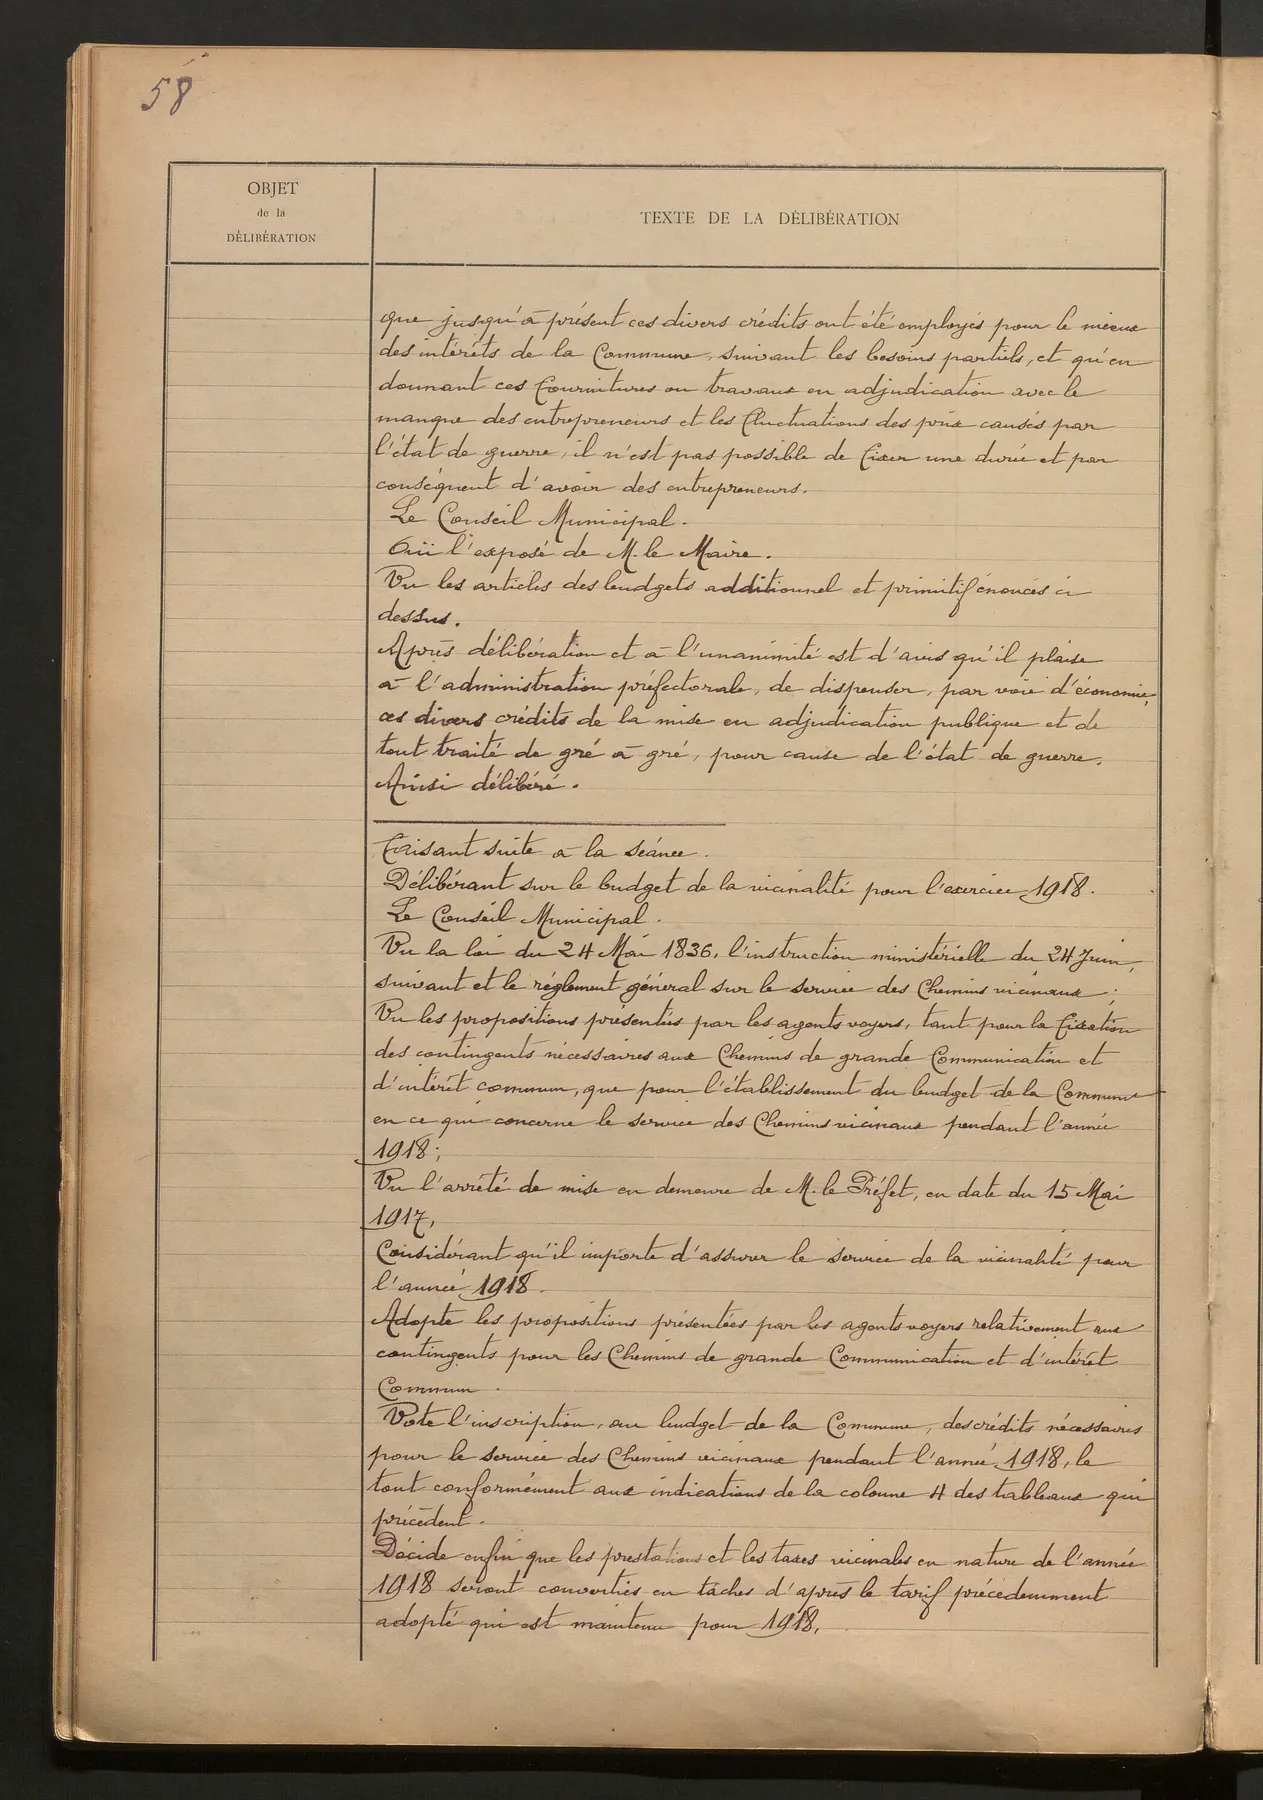 58
OBJET
de la
DÉLIBÉRATION
TEXTE DE LA DÉLIBÉRATION
que jusqu'à présent ces divers crédits ont été employés pour le mieux
des intérêts de la Commune, suivant les besoins partiels, et qu'en
donnant ces fournitures ou travaux en adjudication avec le
manque des entrepreneurs et les fluctuations des prix causés par
l'état de guerre, il n'est pas possible de fixer une durée et par
conséquent d'avoir des entrepreneurs.
Le Conseil Municipal.
Ouï l'exposé de M. le Maire.
Vu les articles des budgets additionnel et primitif énoncés ci
dessus.
Après délibération et à l'unanimité est d'avis qu'il plaise
à l'administration préfectorale, de dispenser, par voie d'économie,
ces divers crédits de la mise en adjudication publique et de
tout traité de gré à gré, pour cause de l'état de guerre.
Ainsi délibéré.
Faisant suite à la séance.
Délibérant sur le budget de la vicinalité pour l'exercice 1918.
Le Conseil Municipal.
Vu la loi du 24 Mai 1836, l'instruction ministérielle du 24 Juin,
suivant et le réglement général sur le service des Chemins vicinaux;
Vu les propositions présentées par les agents voyers, tant pour la fixation
des contingents nécessaires aux Chemins de grande Communication et
d'intérêt commun, que pour l'établissement du budget de la Commune
en ce qui concerne le service des Chemins vicinaux pendant l'année
1918;
Vu l'arrêté de mise en demeure de M. le Préfet, en date du 15 Mai
1917,
Considérant qu'il importe d'assurer le service de la vicinalité pour
l'année 1918.
Adopte les propositions présentées par les agents voyers relativement aux
contingents pour les Chemins de grande Communication et d'intérêt
Commun.
Vote l'inscription, au budget de la Commune, des crédits nécessaires
pour le service des Chemins vicinaux pendant l'année 1918, le
tout conformément aux indications de la colonne 4 des tableaux qui
précèdent.
Décide enfin que les prestations et les taxes vicinales en nature de l'année
1918 seront converties en tâches d'après le tarif précédemment
adopté qui est maintenu pour 1918.